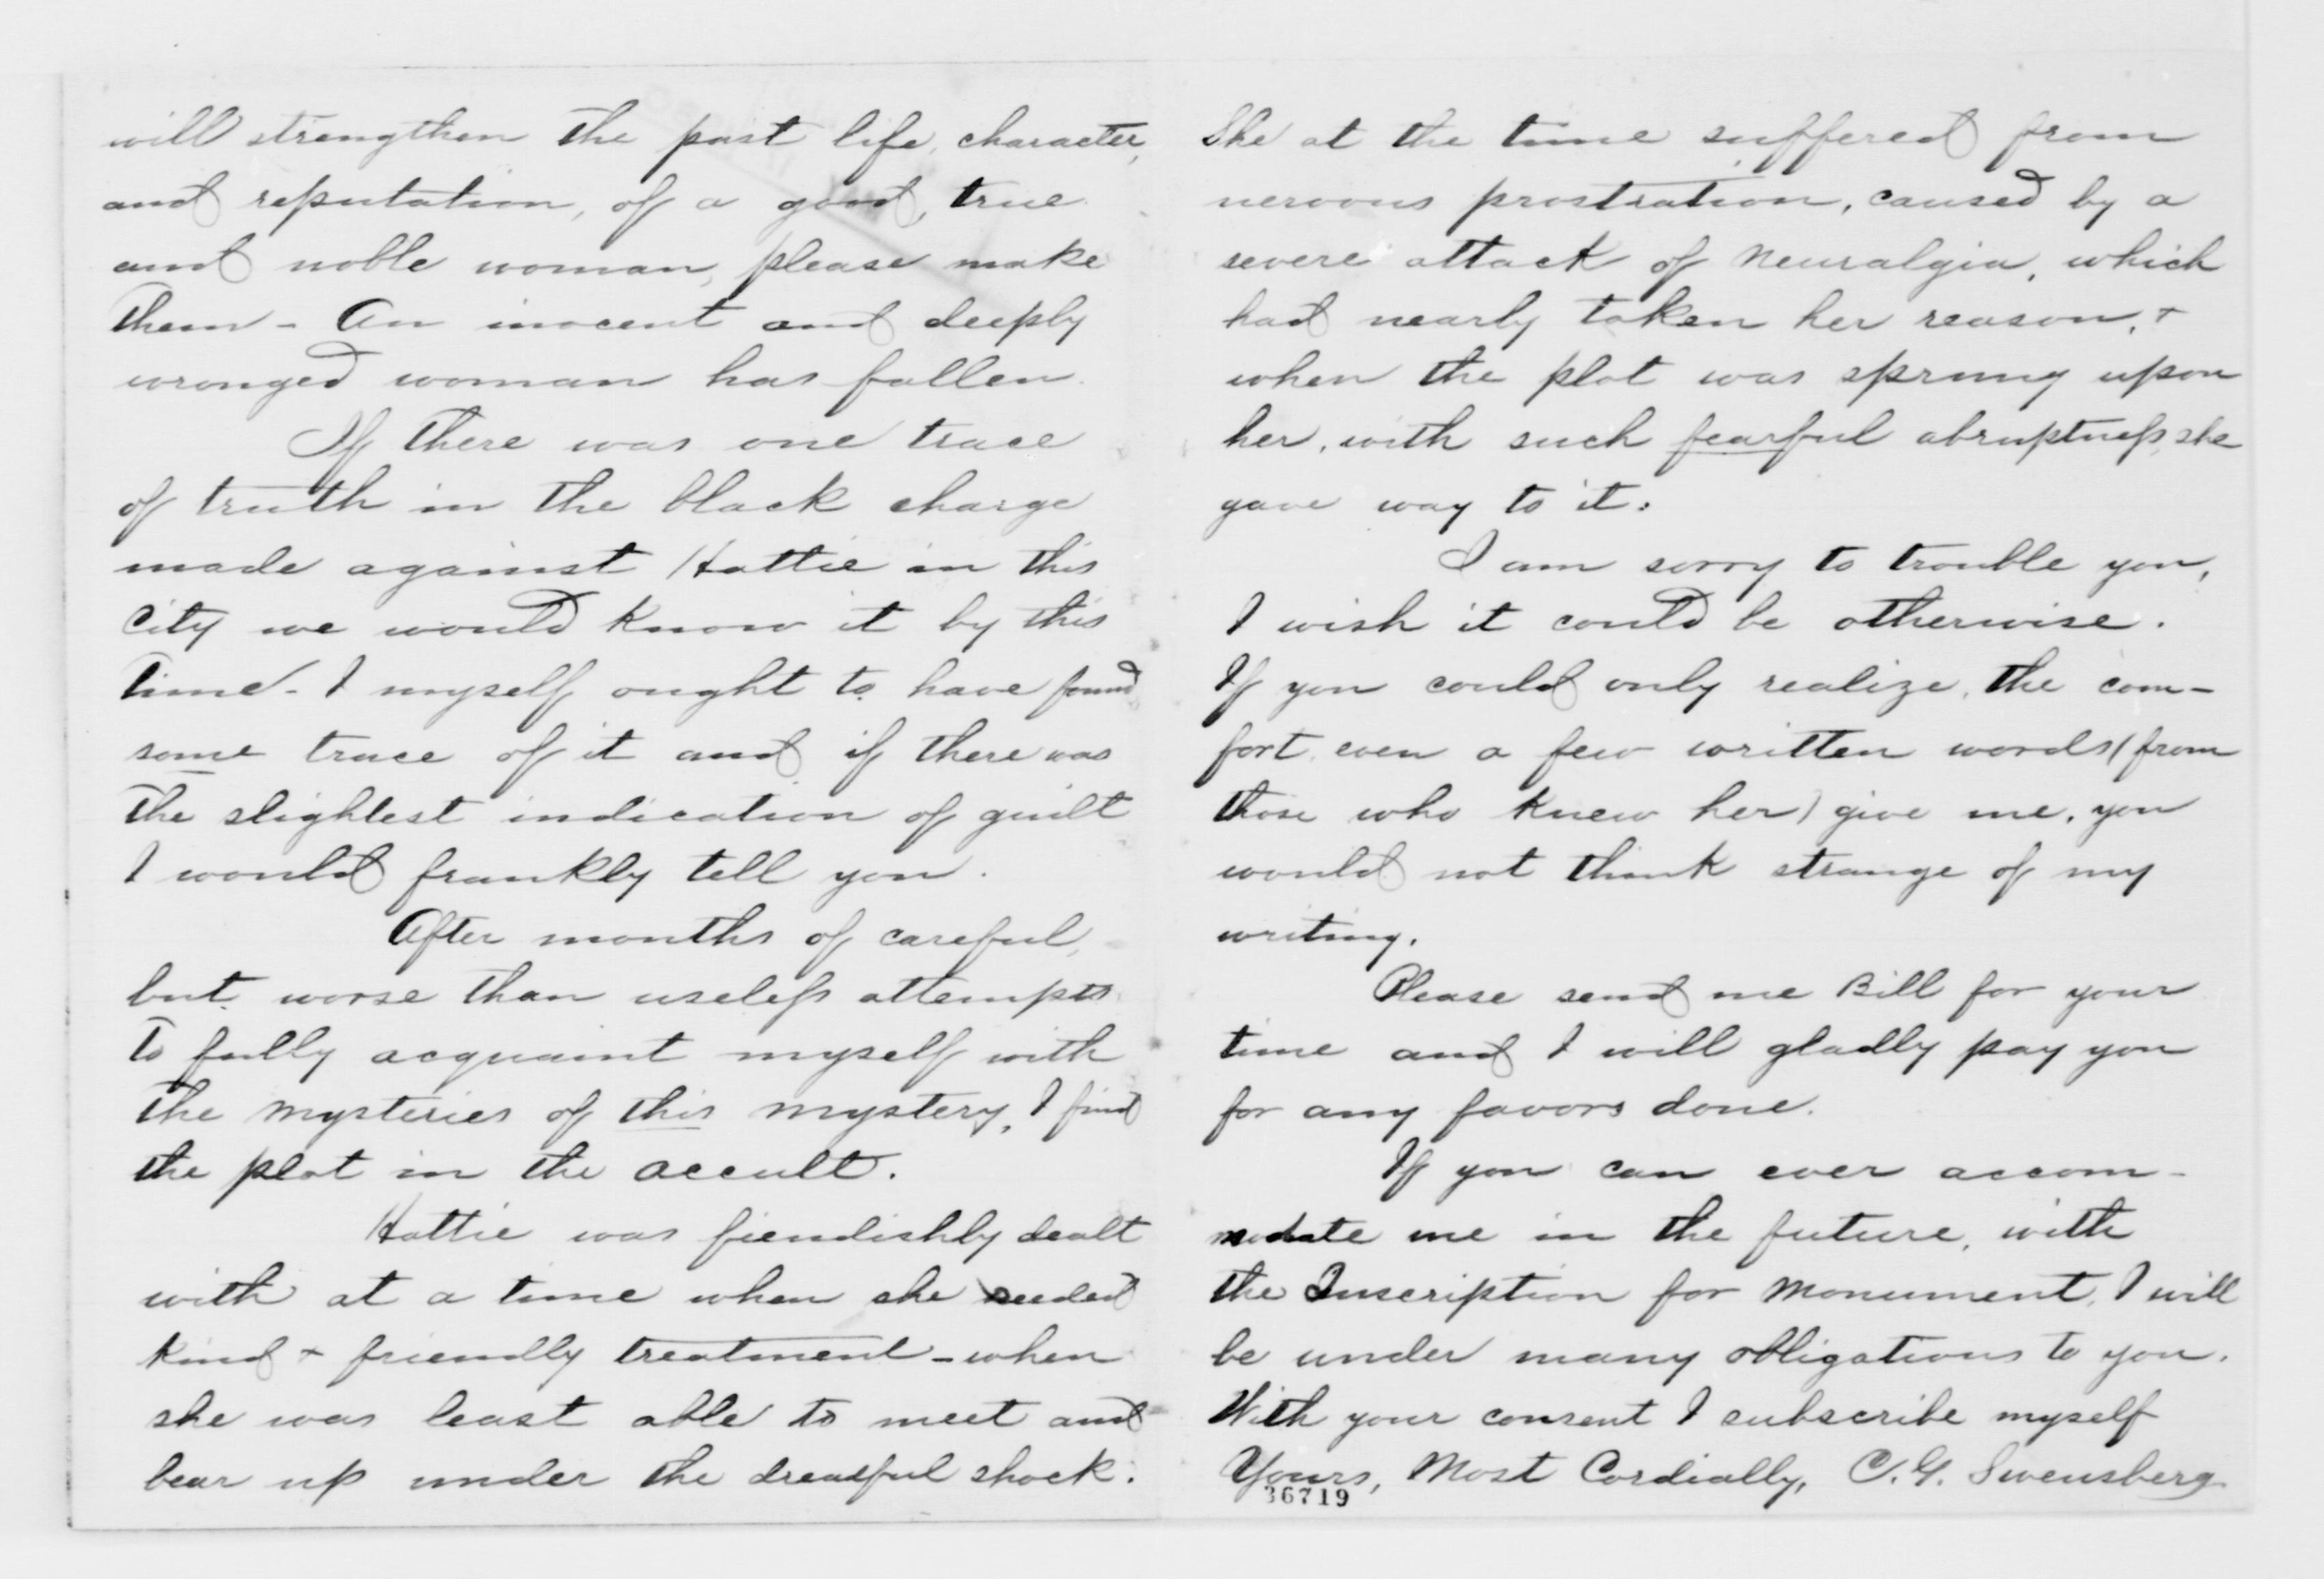 will strengthen the past life, character,
and reputation, of a good, true
and noble woman, please make
them - An inocent and deeply
wronged woman has fallen.
If there was one trace
of truth in the black charge
made against Hattie in this
City we would know it by this
time - I myself ought to have found
some trace of it and if there was
the slightest indication of guilt
I would frankly tell you.
After months of careful,
but worse than useless attempts
to fully acquaint myself with
the mysteries of this mystery, I find
the plot in the occult.
Hattie was fiendishly dealt
with at a time when she needed
kind + friendly treatment - when
she was least able to meet and
bear up under the dreadful shock.
She at the time suffered from
nervous prostration, caused by a
severe attack of Neuralgia, which
had nearly taken her reason, +
when the plot was sprung upon
her, with such fearful abruptness, she
gave way to it.
I am sorry to trouble you,
I wish it could be otherwise.
If you could only realize, the com-
fort, even a few written words (from
those who knew her) give me, you
would not think strange of my
writing.
Please send me Bill for your
time and I will gladly pay you
for any favors done.
If you can ever accom-
modate me in the future, with
the Inscription for Monument, I will
be under many obligations to you.
With your consent I subscribe myself
Yours, Most Cordially, C. G. Swensberg
36719